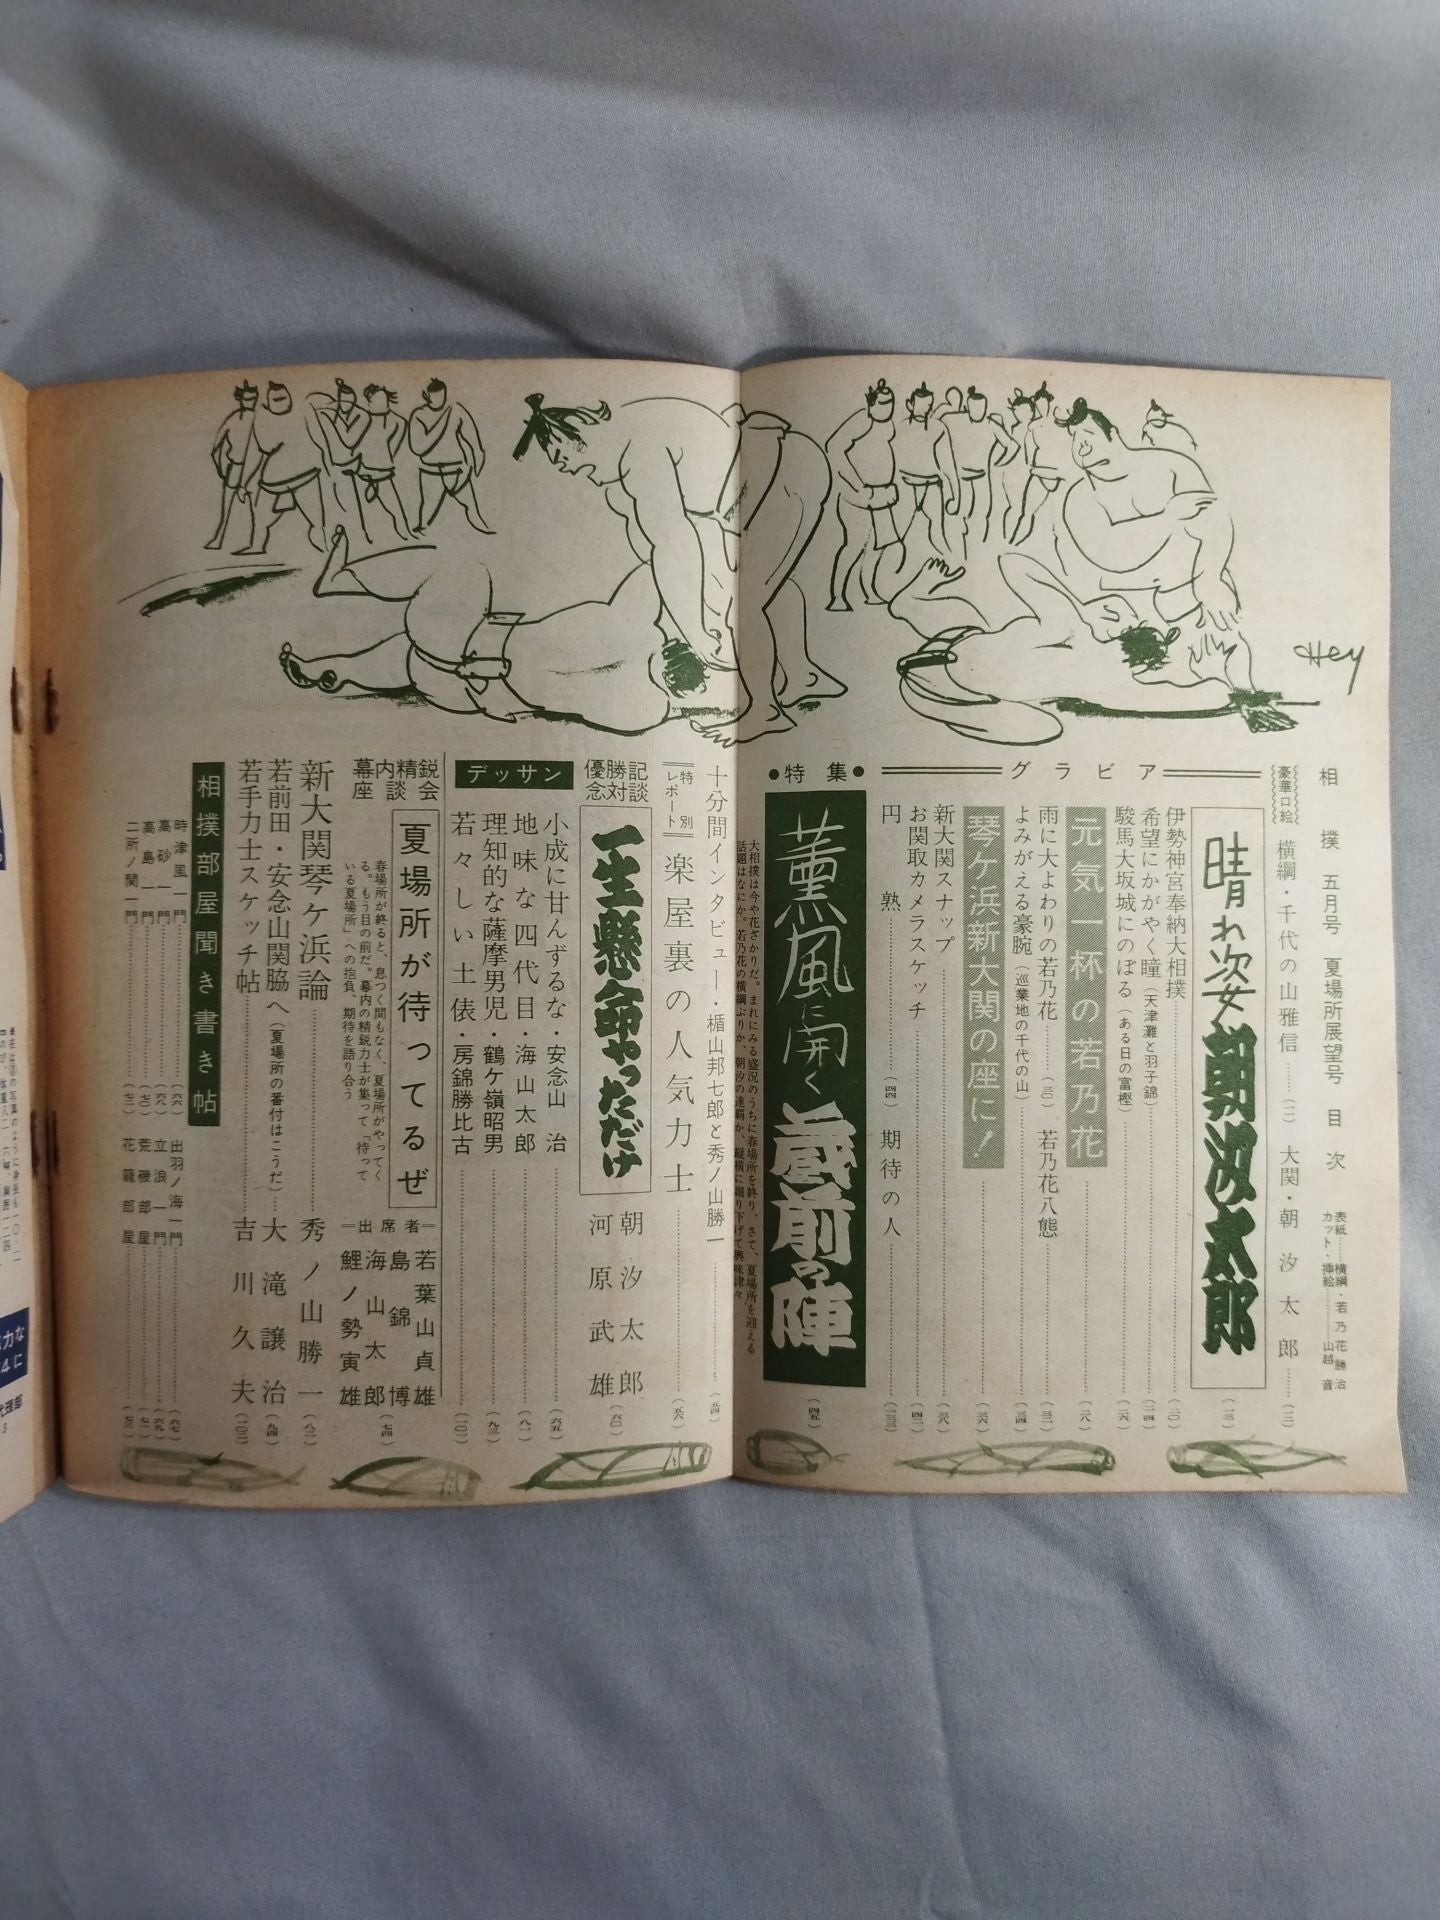 Hey
相撲 五月号 夏場所展望号 目次
表紙……横綱・若乃花勝治
カット・挿絵……山越音
豪華口絵
横綱・千代の山雅信……(一)
大関・朝汐太郎……(二)
グラビア
晴れ姿朝汐太郎……(一三)
伊勢神宮奉納大相撲……(二〇)
希望にかがやく瞳(天津灘と羽子錦)……(二四)
駿馬大坂城にのぼる(ある日の富樫)……(二六)
元気一杯の若乃花……(二八)
雨に大よわりの若乃花……(三〇)
若乃花八態……(三二)
よみがえる豪腕(巡業地の千代の山)……(三四)
琴ケ浜新大関の座に!……(三六)
新大関スナップ……(三八)
お関取カメラスケッチ……(四二)
円熟……(四四)
期待の人……(一三三)
●特集●
薫風に開く蔵前の陣……(四五)
大相撲は今や花ざかりだ。まれにみる盛況のうちに春場所を終り、さて、夏場所を迎える
話題はなにか。若乃花の横綱ぶりか、朝汐の連覇か、縦横に掘り下げて興味津々
十分間インタビュー・楯山邦七郎と秀ノ山勝一……(五四)
特別レポート
楽屋裏の人気力士……(五六)
優勝記念対談
一生懸命やっただけ
朝汐太郎
河原武雄……(六〇)
デッサン
小成に甘んずるな・安念山治……(六五)
地味な四代目・海山太郎……(八一)
理知的な薩摩男児・鶴ケ嶺昭男……(九三)
若々しい土俵・房錦勝比古……(一〇一)
幕内精鋭座談会
夏場所が待ってるぜ
春場所が終ると、息つく間もなく、夏場所がやってく
る。もう目の前だ。幕内の精鋭力士が集って「待って
いる夏場所」への抱負、期待を語り合う
=出席者=
若葉山貞雄
島錦博
海山太郎
鯉ノ勢寅雄……(七四)
新大関琴ケ浜論……秀ノ山勝一(八二)
若前田・安念山関脇へ(夏場所の番付はこうだ)……大滝譲治(九四)
若手力士スケッチ帖……吉川久夫(一〇二)
相撲部屋聞き書き帖
時津風一門……(六六)
出羽ノ海一門……(六七)
高砂一門……(六八)
立浪一門……(六九)
高島一門……(七〇)
荒磯部屋……(七一)
二所ノ関一門……(七二)
花籠部屋……(七三)